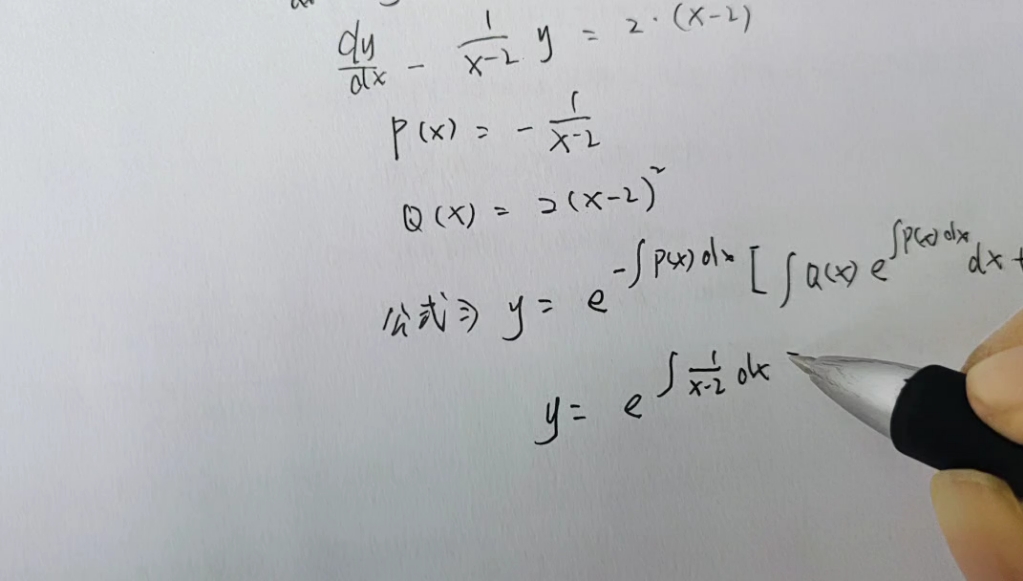 dy/dx - 1/(x-2) y = 2·(x-2)
P(x) = - 1/(x-2)
Q(x) = 2(x-2)²
公式⇒ y = e^(-∫P(x)dx) [∫Q(x) e^(∫P(x)dx) dx +
y = e^(∫ 1/(x-2) dx)